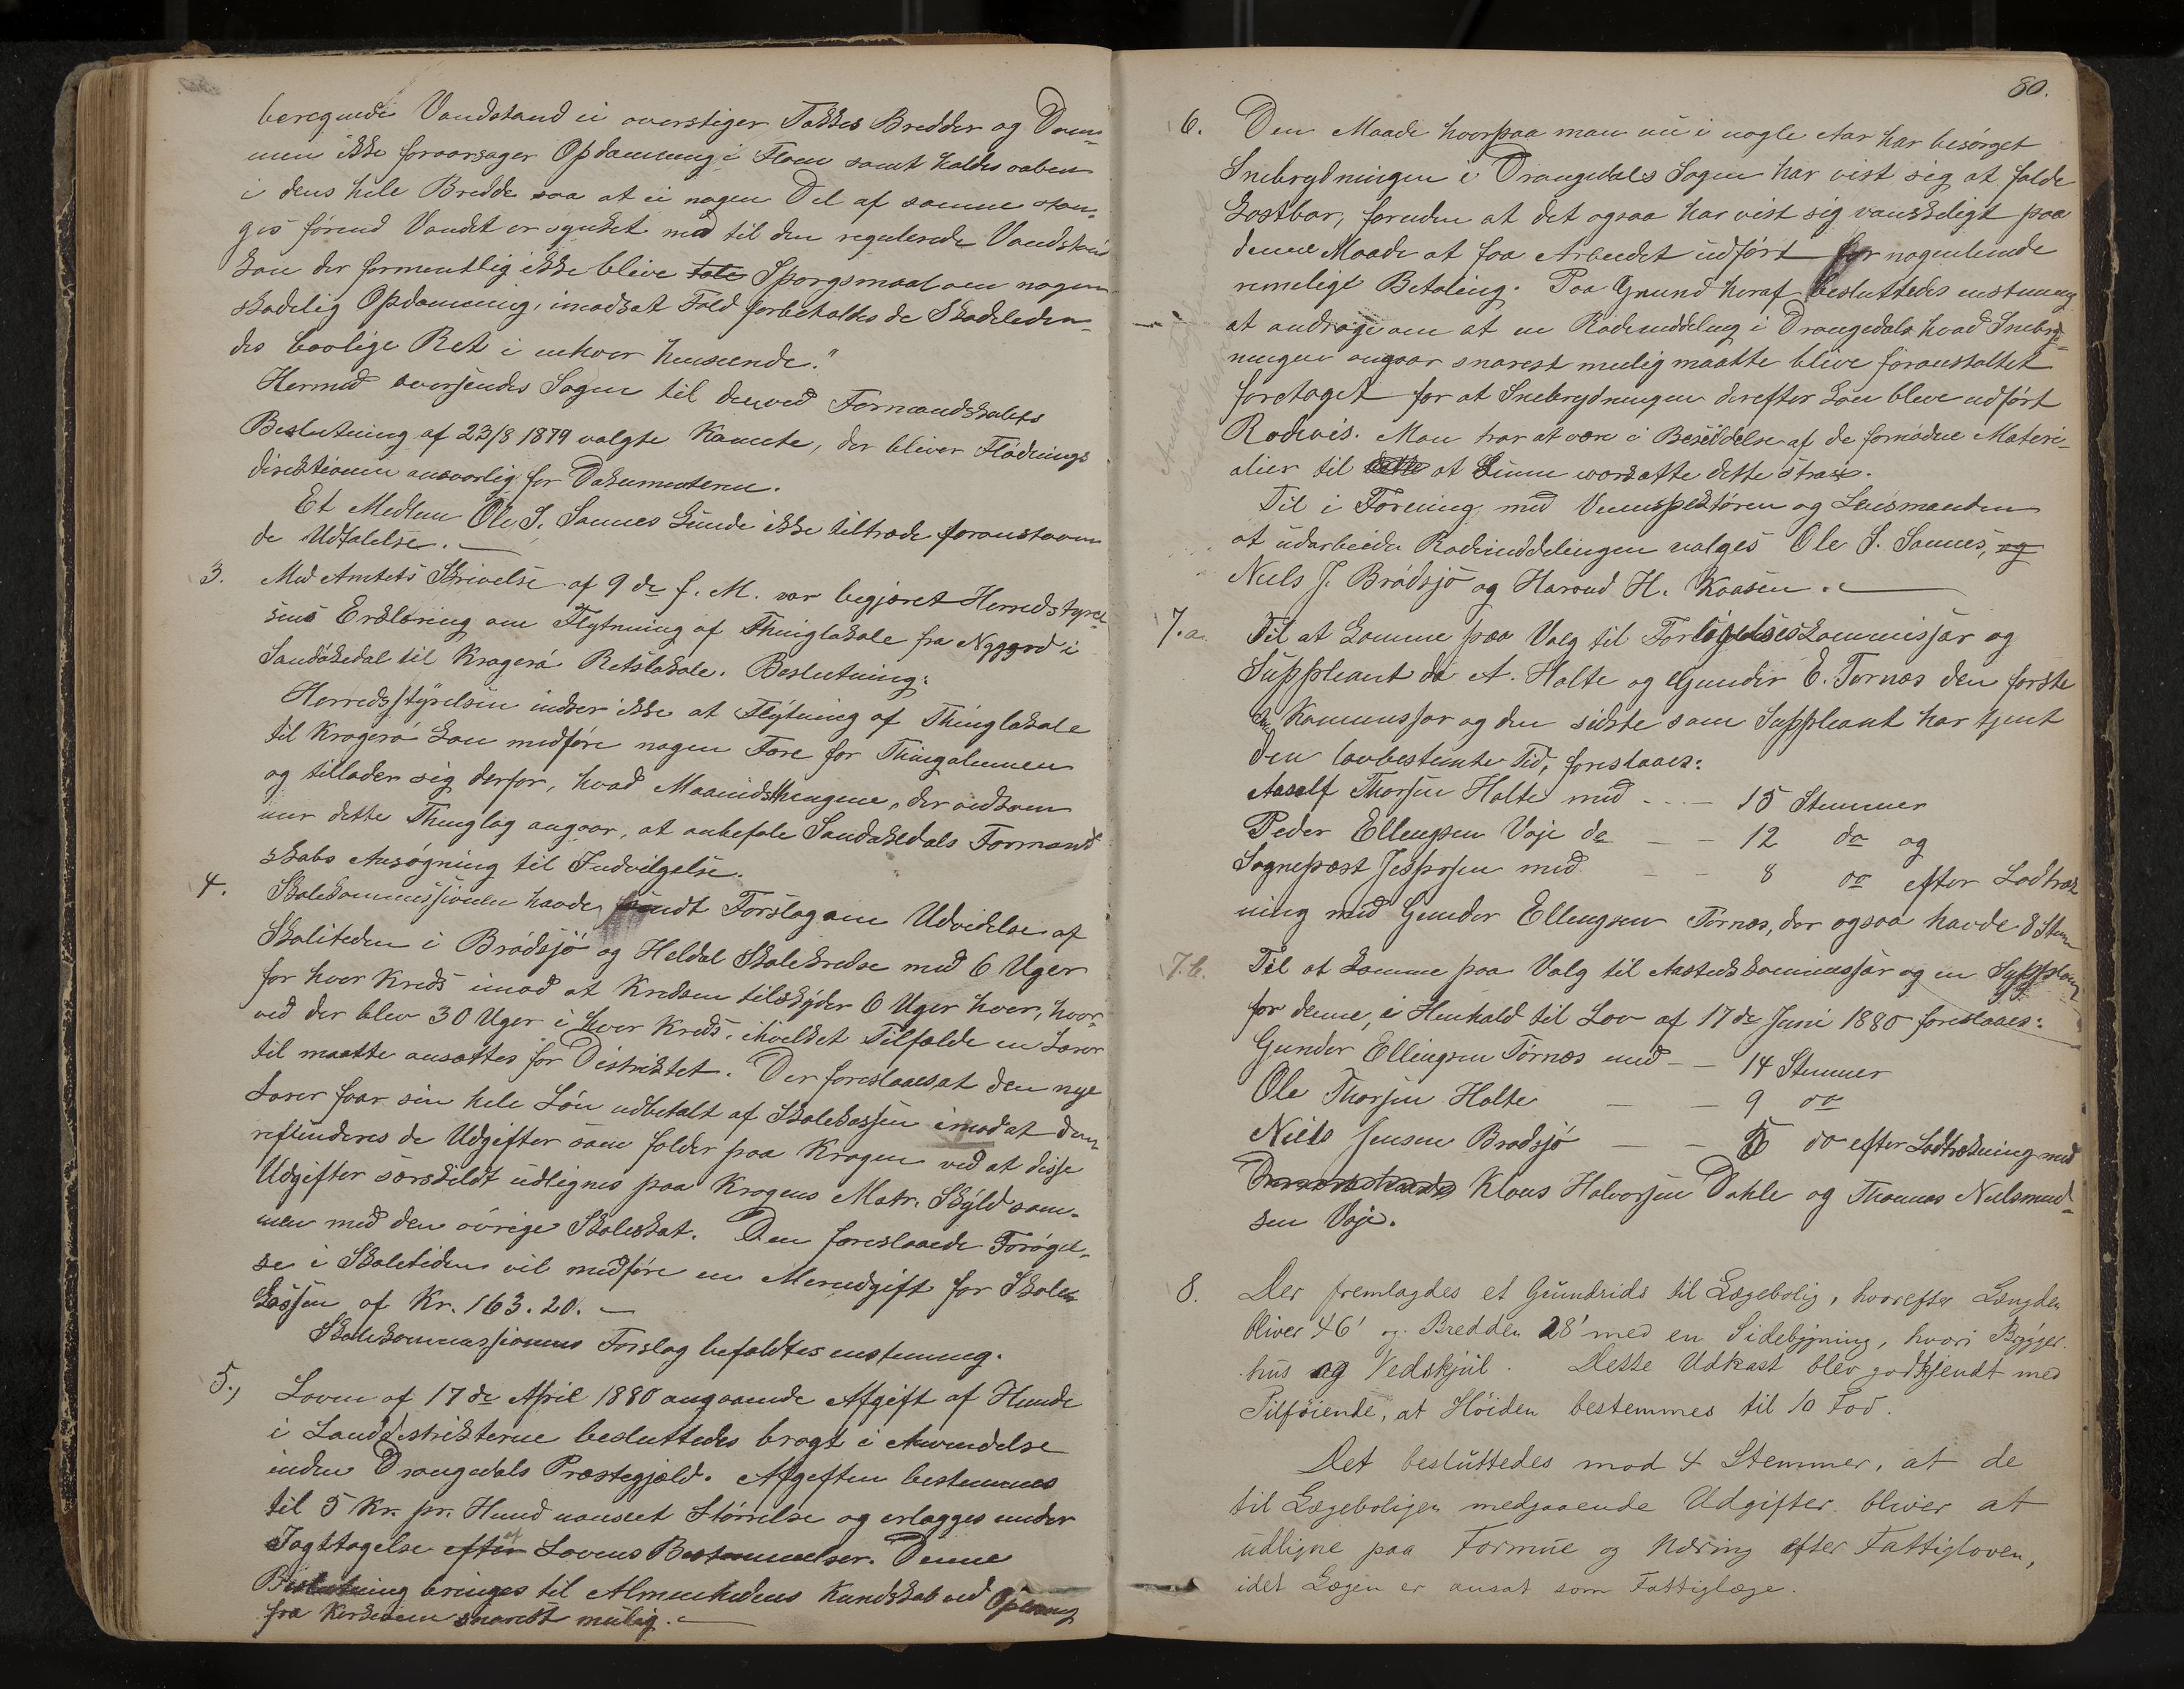 beregnede Vandstand ei overstiger Tokkes Bredder og Dam-
men ikke foraarsager Opdæmning i Floen samt holdes aaben
i dens hele Bredde saa at ei nogen Del af samme stæn-
ges førend Vandet er sunket ned til den regulerede Vandstand
kan der formentlig ikke blive tale Spørgsmaal om nogen
skadelig Opdæmning, imodsat Fald forbeholdes de Skadeliden-
des lovlige Ret i enhver henseende."
Hermed oversendes Sagen til den ved Formandskabets
Beslutning af 23/8 1879 valgte Komite, der bliver Flødnings
direktionen ansvarlig for Dokumenterne.
Et Medlem Ole S. Sannes kunde ikke tiltræde foranstaaen
de Udtalelse.
3. Med Amtets Skrivelse af 9de f. M. var begjæret Herredstyrel-
sens Erklæring om Flytning af Thinglokale fra Nygaard i
Sandøkedal til Kragerø Retslokale. Beslutning:
Herredsstyrelsen indser ikke at Flytning af Thinglokale
til Kragerø kan medføre nogen Fare for Thingalmuen
og tillader sig derfor, hvad Maanedsthingene, der vedkom
mer dette Thinglag angaar, at anbefale Sandøkedals Formand
skabs Ansøgning til Indvilgelse.
4. Skolekommissionen havde sendt Forslag om Udvidelse af
Skoletiden i Brødsjø og Heldal Skolekredse med 6 Uger
for hver Kreds imod at Kredsen tilskyder 6 Uger hver, hvor-
ved der blev 30 Uger i hver Kreds, ihvilket Tilfælde en Lærer
til maatte ansættes for Distriktet. Der foreslaaes at den nye
Lærer faar sin hele Løn udbetalt af Skolekassen imod at den
refunderes de Udgifter som falder paa Krogen ved at disse
Udgifter særskildt udlignes paa Krogens Matr. Skyld sam-
men med den øvrige Skoleskat. Den foreslaaede Forøgel-
se i Skoletiden vil medføre en Merudgift for Skole
kassen af Kr. 163.20.
Skolekommissionens Forslag befaldtes enstemmig.
5., Loven af 17de April 1880 angaaende Afgift af Hunde
i Landdistrikterne besluttedes bragt i Anvendelse
inden Drangedals Præstegjæld. Afgiften bestemmes
til 5 Kr. pr. Hund uanseet Størrelse og erlægges under
Iagttagelse efter af Lovens Bestemmelser. Denne
Beslutning bringes til Almenhedens Kundskab ved Oplæsning
fra Kirkerne snarest mulig.
80.
6. Den Maade hvorpaa man nu i nogle Aar har besørget
Snebrydningen i Drangedals Sogn har vist sig at falde
kostbar, foruden at det ogsaa har vist sig vanskeligt paa
denne Maade at faa Arbeidet udført for nogenlunde
rimelig Betaling. Paa Grund heraf besluttedes enstemmig
at andrage om at en Rodeinddeling i Drangedals hvad Snebryd-
ningen angaar snarest mulig maatte blive foranstaltet
foretaget for at Snebrydningen derefter kan blive udført
Rodevis. Man tror at være i Besiddelse af de fornødne Materi-
alier til dette at kunne værksætte dette strax.
Til i Forening med Veiinspektøren og Lensmanden
at udarbeide Rodeinddelingen valges Ole S. Sannes, og
Niels J. Brødsjø og Harond H. Kaasen.
7.a. Til at komme paa Valg til Forligelseskommissær og
Suppleant da A. Holte og Gunder E. Tørnæs den første
som Kommissær og den sidste som Suppleant har tjent
den lovbestemte Tid, foreslaaes:
Aasolf Thorsen Holte med - - - 15 Stemmer
Peder Ellingsen Voje do - - 12 do og
Sogneprest Jespersen med - - 8 do efter Lodtræk
ning med Gunder Ellingsen Tørnæs, der ogsaa havde 8 Stem
7.b. Til at komme paa Valg til Aastedskommissær og en Suppleant
for denne, i Henhold til Lov af 17de Juni 1880 foreslaaes:
Gunder Ellingsen Tørnæs med - - 14 Stemmer
Ole Thorsen Holte - - 9 do
Niels Jensen Brødsjø - - 5 do efter Lodtrækning med
Klaus Halvorsen Dahle og Thomas Nielsmand-
sen Voje.
8. Der fremlagdes et Grundrids til Lægebolig, hvorefter Længden
bliver 46' og Bredden 28' med en Sidebygning, hvori Brygger-
hus og Vedskjul. Dette Udkast blev godkjendt med
Tilføiende, at Høiden bestemmes til 10 Fod.
Det besluttedes mod 4 Stemmer, at de
til Lægeboligen medgaaende Udgifter bliver at
udligne paa Formue og Næring efter Fattigloven,
idet Lægen er ansat som Fattiglæge.